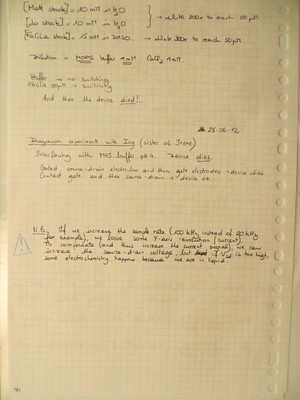 [Malt stock] = 10 mM in H2O
[Glu stock] = 10 mM in H2O → dilute 200x to reach 50 µM
[FaGLa stock] = 15 mM in DMSO. → dilute 300x to reach 50µM
Dilution in MOPS buffer 1 mM CaCl2 1 mM.
Buffer → no switching
FAGLA 50µM → switching
And then the device died!..
25-06-12
experiment with Ing (visto at Irene)
Interfacing with MES buffer pH 4. Device dies.
source-drain electrodes and then gate electrodes → device dies
gate and then source-drain → device ok.
N.B. If we increase the sample rate (100 kHz instead of 20 kHz
for example), we loose some Y-axis resolution (current).
To compensate (and thus increase the current signal), we can
increase the source-drain voltage, but if Vsd is too high,
some electrochemistry happens because we are in liquid.